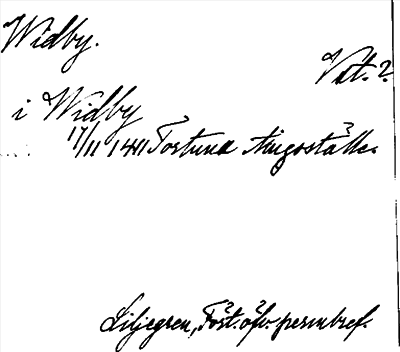 Widby.
Vst. ?
i Widby
17/11 1411 Torstuna tingställe.
Liljegren, Fört. öfv. permbref.